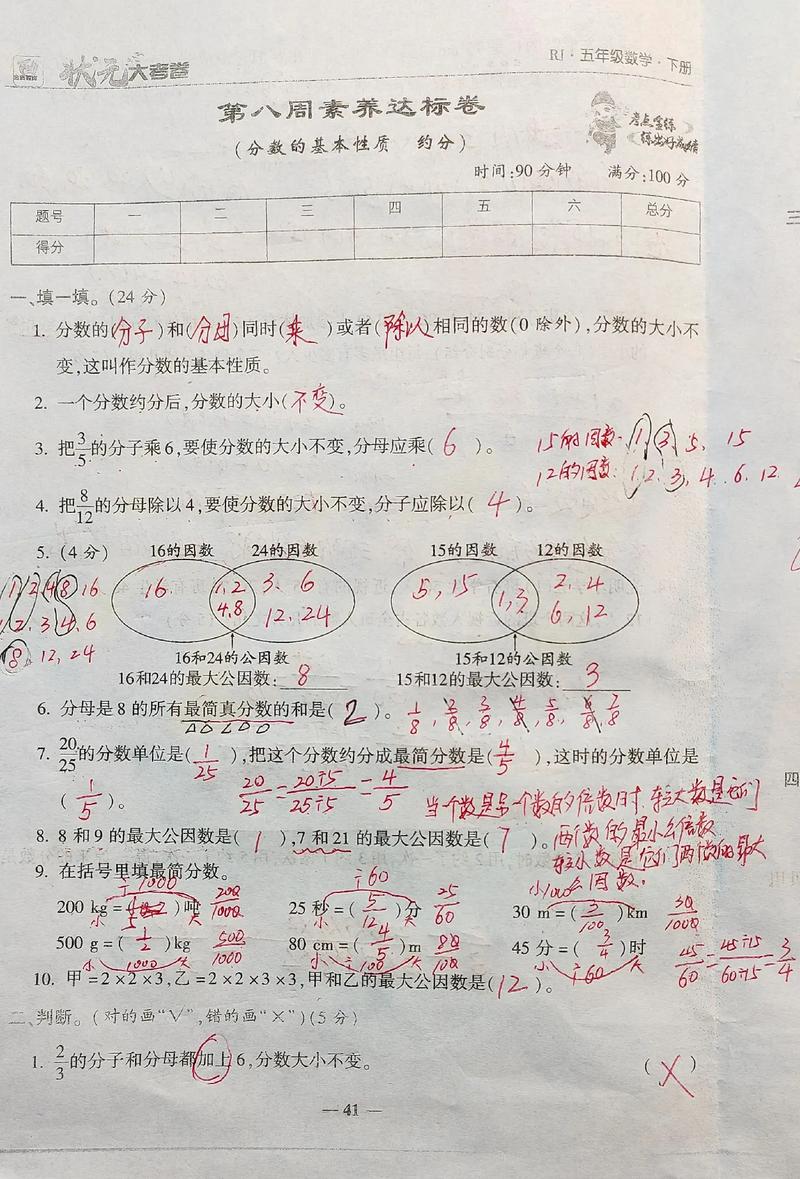 状元大考卷
RJ·五年级数学·下册
第八周素养达标卷
(分数的基本性质 约分)
考点全练
时间:90分钟 满分:100分
题号 一 二 三 四 五 六 总分
得分
一、填一填。(24分)
1. 分数的(分子)和(分母)同时(乘)或者(除以)相同的数(0除外),分数的大小不
变,这叫作分数的基本性质。
2. 一个分数约分后,分数的大小(不变)。
3. 把3/5的分子乘6,要使分数的大小不变,分母应乘( 6 )。
15的因数: 1, 3, 5, 15
12的因数: 1, 2, 3, 4, 6, 12
4. 把8/12的分母除以4,要使分数的大小不变,分子应除以( 4 )。
5. (4分) 16的因数 24的因数 15的因数 12的因数
1, 2, 4, 8, 16
1, 2, 3, 4, 6
8, 12, 24
16. 1, 2 3、6 5, 15 1, 3 2, 4
4, 8 12, 24 6, 12
16和24的公因数 15和12的公因数
16和24的最大公因数: 8 15和12的最大公因数: 3
6. 分母是8的所有最简真分数的和是( 2 )。 1/8, 2/8, 3/8, 4/8, 5/8, 6/8, 7/8
7. 20/25的分数单位是( 1/25 ),把这个分数约分成最简分数是( 4/5 ),这时的分数单位是
( 1/5 )。 20/25=20÷5/25÷5=4/5
当一个数是另一个数的倍数时,较大数是它们
两个数的最小公倍数
较小数是它们两个数的最大
公因数.
8. 8和9的最大公因数是( 1 ),7和21的最大公因数是( 7 )。
9. 在括号里填最简分数。
÷1000 ÷60 小 1000 大
200 kg=( )吨 200/1000 25秒=( 5/12 )分 25/60 30 m=( 3/100 )km 30/1000
500 g=( 1/2 )kg 500/1000 80 cm=( 4/5 )m 80/100 45分=( 3/4 )时 45/60=45÷15/60÷15=3/4
小 1000 大 小 ÷100 大 小 ÷60 大
10. 甲=2×2×3,乙=2×2×3×3,甲和乙的最大公因数是( 12 )。
二、判断。(对的画“√”,错的画“×”)(5分)
1. 2/3的分子和分母都加上6,分数大小不变。 ( × )
三
四
— 41 —